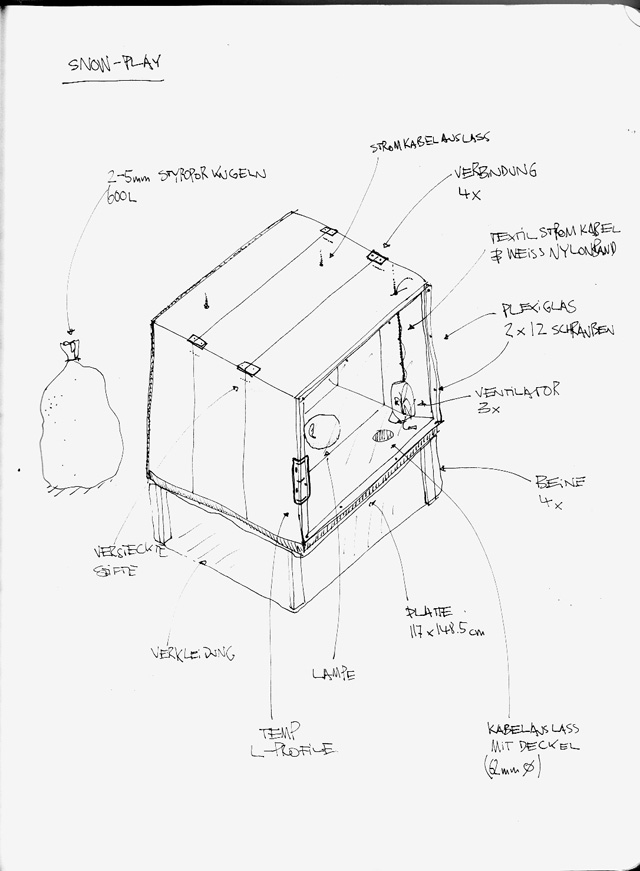 SNOW-PLAY
STROMKABELANSLASS
2-5mm STYROPOR KUGELN
600L
VERBINDUNG
4x
TEXTIL STROMKABEL
& WEISS NYLONBAND
PLEXIGLAS
2 x 12 SCHRAUBEN
VENTILATOR
3x
BEINE
4x
VERSTECKTE
STIFTE
PLATTE
117 x 148.5 cm
VERKLEIDUNG
LAMPE
TEMP
L-PROFILE
KABELANSLASS
MIT DECKEL
(62mm Ø)